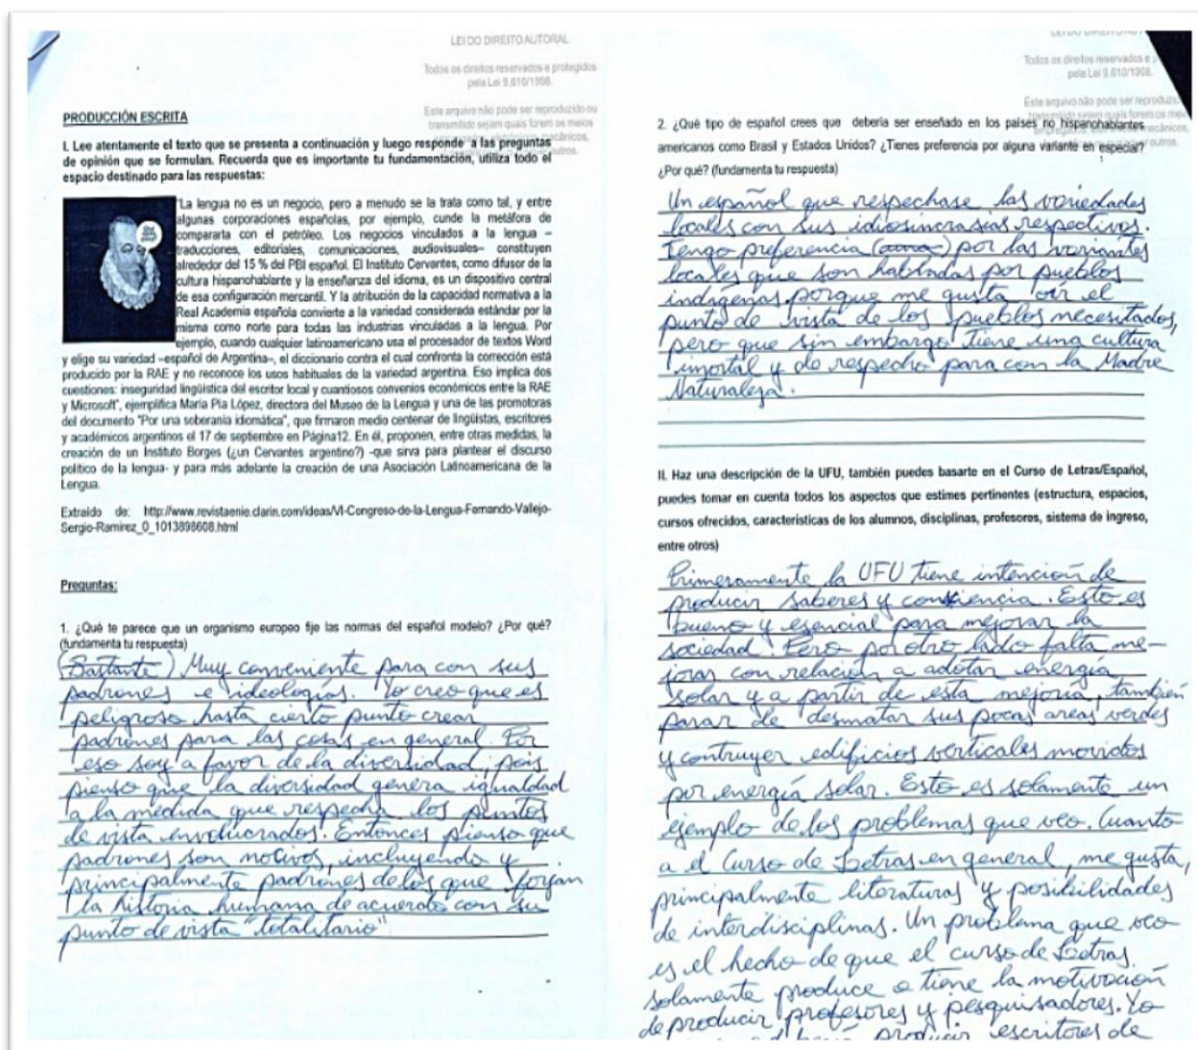 LEI DO DIREITO AUTORAL
Todos os direitos reservados e protegidos
pela Lei 9.610/1998.
Este arquivo não pode ser reproduzido ou
transmitido sejam quais forem os meios
PRODUCCIÓN ESCRITA
I. Lee atentamente el texto que se presenta a continuación y luego responde a las preguntas
de opinión que se formulan. Recuerda que es importante tu fundamentación, utiliza todo el
espacio destinado para las respuestas:
"La lengua no es un negocio, pero a menudo se la trata como tal, y entre
algunas corporaciones españolas, por ejemplo, cunde la metáfora de
compararla con el petróleo. Los negocios vinculados a la lengua –
traducciones, editoriales, comunicaciones, audiovisuales– constituyen
alrededor del 15 % del PBI español. El Instituto Cervantes, como difusor de la
cultura hispanohablante y la enseñanza del idioma, es un dispositivo central
de esa configuración mercantil. Y la atribución de la capacidad normativa a la
Real Academia española convierte a la variedad considerada estándar por la
misma como norte para todas las industrias vinculadas a la lengua. Por
ejemplo, cuando cualquier latinoamericano usa el procesador de textos Word
y elige su variedad –español de Argentina–, el diccionario contra el cual confronta la corrección está
producido por la RAE y no reconoce los usos habituales de la variedad argentina. Eso implica dos
cuestiones: inseguridad lingüística del escritor local y cuantiosos convenios económicos entre la RAE
y Microsoft", ejemplifica María Pía López, directora del Museo de la Lengua y una de las promotoras
del documento "Por una soberanía idiomática", que firmaron medio centenar de lingüistas, escritores
y académicos argentinos el 17 de septiembre en Página12. En él, proponen, entre otras medidas, la
creación de un Instituto Borges (¿un Cervantes argentino?) -que sirva para plantear el discurso
político de la lengua- y para más adelante la creación de una Asociación Latinoamericana de la
Lengua.
Extraído de: http://www.revistaenie.clarin.com/ideas/VI-Congreso-de-la-Lengua-Fernando-Vallejo-
Sergio-Ramirez_0_1013898608.html
Preguntas:
1. ¿Qué te parece que un organismo europeo fije las normas del español modelo? ¿Por qué?
(fundamenta tu respuesta)
(Bastante) Muy conveniente para con sus
padrones e ideologías. Yo creo que es
peligroso hasta cierto punto crear
padrones para las cosas en general. Por
eso soy a favor de la diversidad, pois
pienso que la diversidad genera igualdad
a la medida que respecha los puntos
de vista involucrados. Entonces pienso que
padrones son motivos, incluyendo y
principalmente padrones de los que forjan
la história humana de acuerdo con su
punto de vista "totalitario"
Todos os direitos reservados e p
pela Lei 9.610/1998.
Este arquivo não pode ser reproduzi
2. ¿Qué tipo de español crees que debería ser enseñado en los países no hispanohablantes
americanos como Brasil y Estados Unidos? ¿Tienes preferencia por alguna variante en especial?
¿Por qué? (fundamenta tu respuesta)
Un español que respechase las variedades
locales con sus idiosincrasias respectivas.
Tengo preferencia por las variantes
locales que son habladas por pueblos
indígenas, porque me gusta oír el
punto de vista de los pueblos necesitados,
pero que sin embargo tiene una cultura
imortal y de respecho para con la Madre
Naturaleza.
II. Haz una descripción de la UFU, también puedes basarte en el Curso de Letras/Español,
puedes tomar en cuenta todos los aspectos que estimes pertinentes (estructura, espacios,
cursos ofrecidos, características de los alumnos, disciplinas, profesores, sistema de ingreso,
entre otros)
Primeramente la UFU tiene intención de
producir saberes y consciencia. Esto es
bueno y esencial para mejorar la
sociedad. Pero por otro lado falta me-
jorar con relación a adotar energía
solar y a partir de esta mejoría, también
parar de desmatar sus pocas areas verdes
y contruyer edificios verticales movidos
por energía solar. Esto es solamente un
ejemplo de los problemas que veo. Cuanto
a el Curso de Letras en general, me gusta,
principalmente literaturas y posibilidades
de interdisciplinas. Un problema que veo
es el hecho de que el curso de Letras
solamente produce o tiene la motivación
de producir profesores y pesquisadores. Yo
producir escritores de